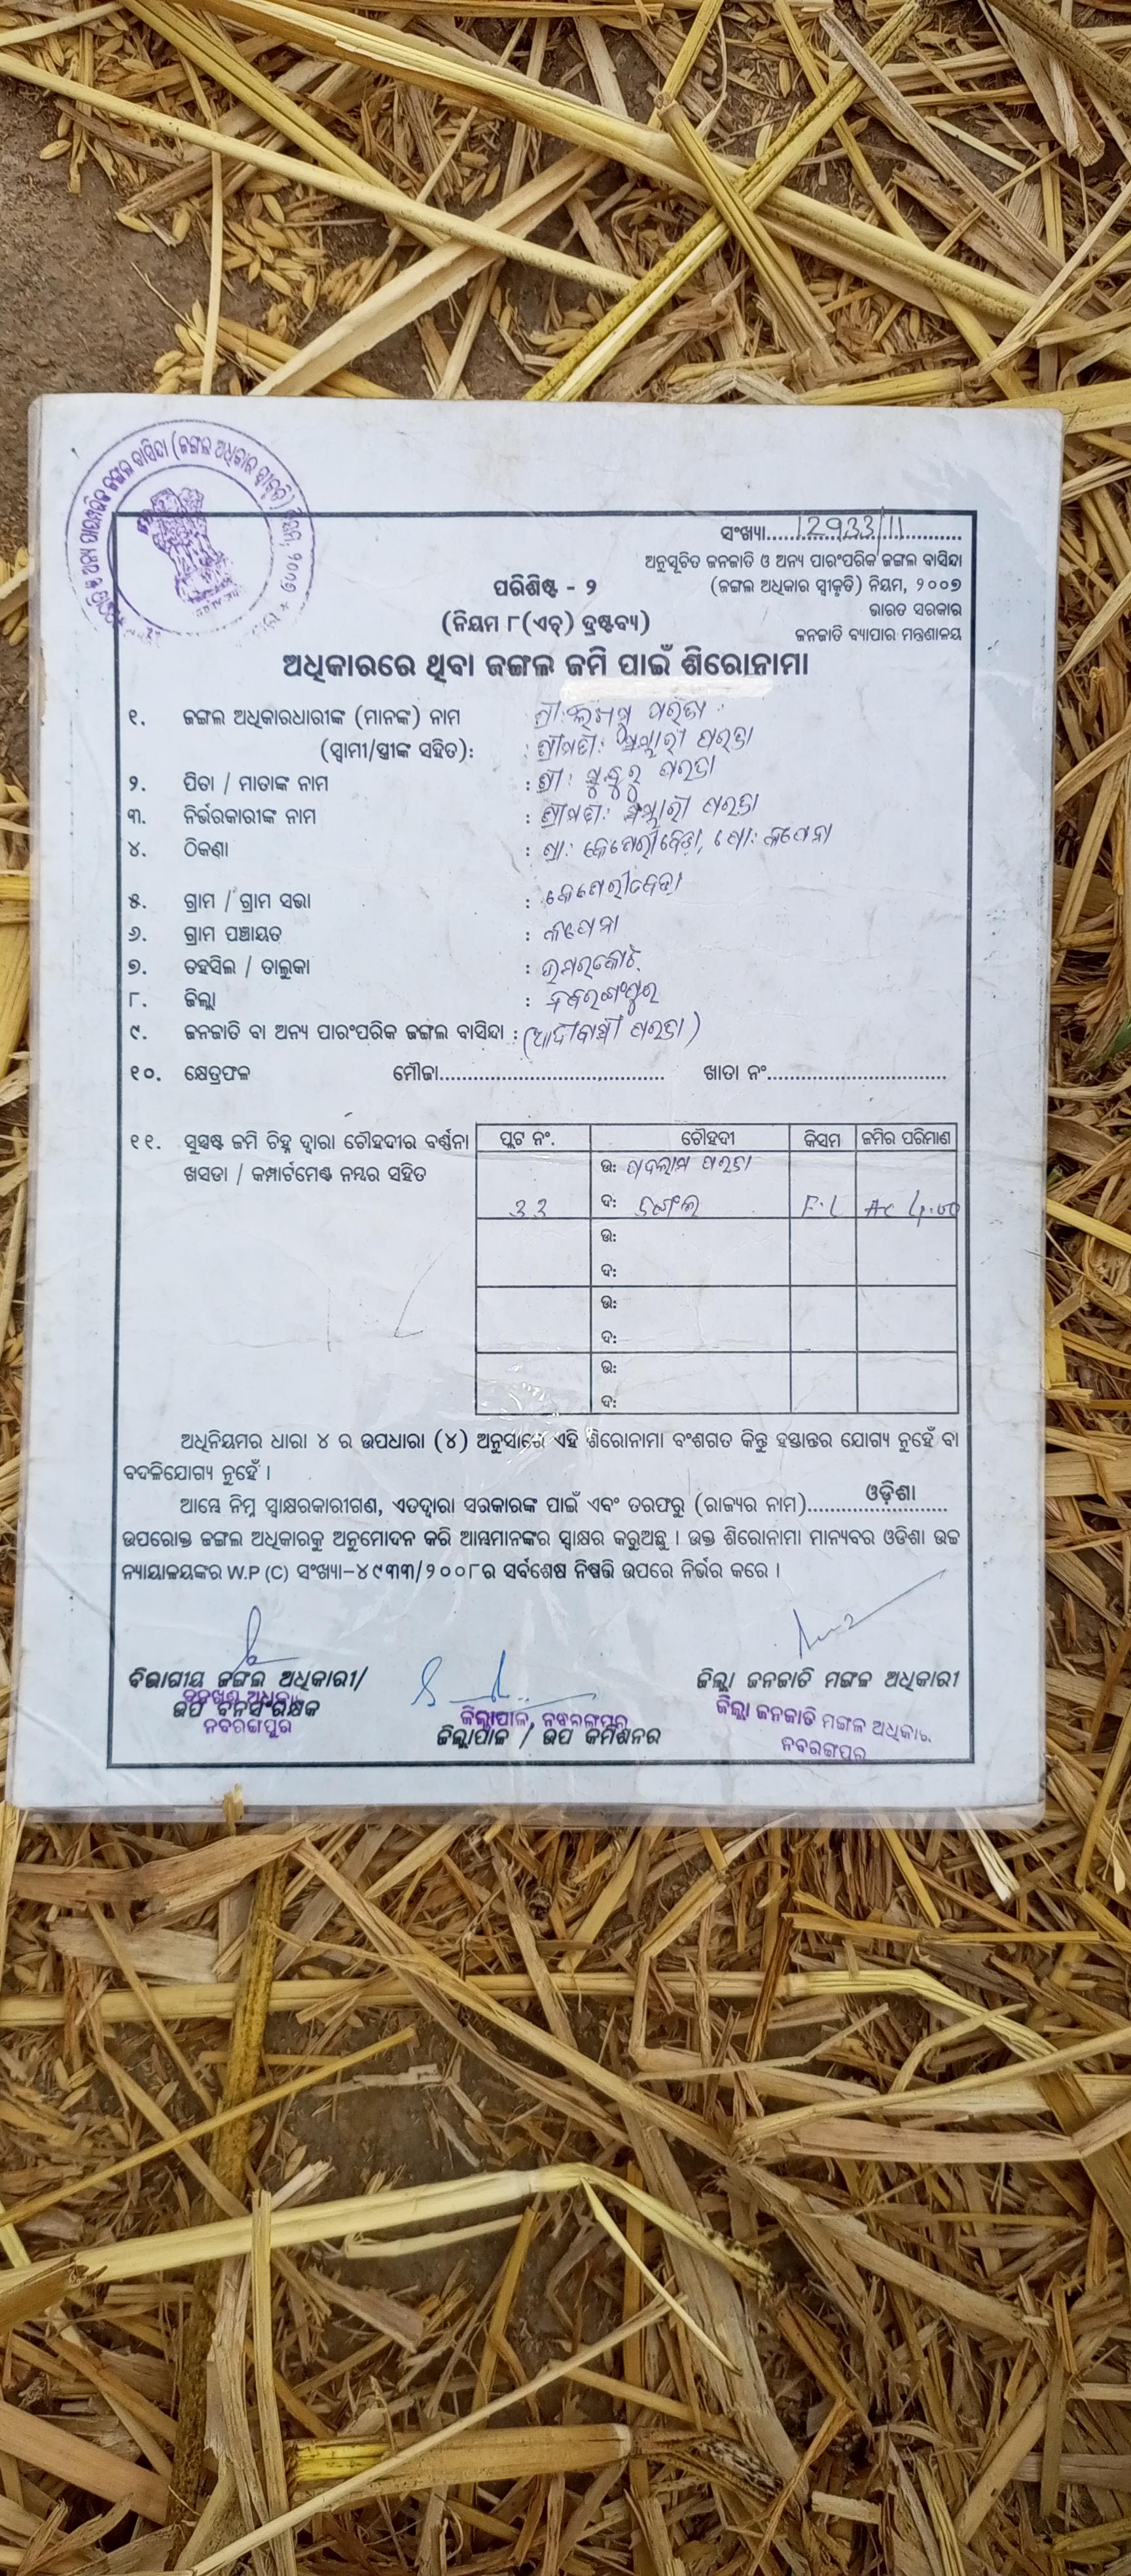 ଅନ୍ୟ ପାରମ୍ପରିକ ଜଙ୍ଗଲ ବାସିନ୍ଦା (ଜଙ୍ଗଲ ଅଧିକାର ସ୍ୱୀକୃତି) ନିୟମ, ୨୦୦୭
ସଂଖ୍ୟା....12933/11....
ଅନୁସୂଚିତ ଜନଜାତି ଓ ଅନ୍ୟ ପାରଂପରିକ ଜଙ୍ଗଲ ବାସିନ୍ଦା
(ଜଙ୍ଗଲ ଅଧିକାର ସ୍ୱୀକୃତି) ନିୟମ, ୨୦୦୭
ଭାରତ ସରକାର
ଜନଜାତି ବ୍ୟାପାର ମନ୍ତ୍ରଣାଳୟ
ପରିଶିଷ୍ଟ - ୨
(ନିୟମ ୮(ଏଚ୍) ଦ୍ରଷ୍ଟବ୍ୟ)
ଅଧିକାରରେ ଥିବା ଜଙ୍ଗଲ ଜମି ପାଇଁ ଶିରୋନାମା
୧. ଜଙ୍ଗଲ ଅଧିକାରଧାରୀଙ୍କ (ମାନଙ୍କ) ନାମ : ଶ୍ରୀ: ପରଜା
(ସ୍ୱାମୀ/ସ୍ତ୍ରୀଙ୍କ ସହିତ): : ଶ୍ରୀମତୀ: ପରଜା
୨. ପିତା / ମାତାଙ୍କ ନାମ : ଶ୍ରୀ: ପରଜା
୩. ନିର୍ଭରକାରୀଙ୍କ ନାମ : ଶ୍ରୀମତୀ: ପରଜା
୪. ଠିକଣା : ଗ୍ରା: କେଶେରୀବେଡ଼ା, ପୋ:
୫. ଗ୍ରାମ / ଗ୍ରାମ ସଭା : କେଶେରୀବେଡ଼ା
୬. ଗ୍ରାମ ପଞ୍ଚାୟତ :
୭. ତହସିଲ / ତାଲୁକା : ଉମରକୋଟ
୮. ଜିଲ୍ଲା : ନବରଙ୍ଗପୁର
୯. ଜନଜାତି ବା ଅନ୍ୟ ପାରଂପରିକ ଜଙ୍ଗଲ ବାସିନ୍ଦା : (ଆଦୀବାସୀ ପରଜା)
୧୦. କ୍ଷେତ୍ରଫଳ ମୌଜା.................... ଖାତା ନଂ....................
୧୧. ସୁସ୍ପଷ୍ଟ ଜମି ଚିହ୍ନ ଦ୍ୱାରା ଚୌହଦୀର ବର୍ଣ୍ଣନା
ଖସଡା / କମ୍ପାର୍ଟମେଣ୍ଟ ନମ୍ବର ସହିତ
ପ୍ଲଟ ନଂ. ଚୌହଦୀ କିସମ ଜମିର ପରିମାଣ
ଉ: ପରଜା
33 ଦ: ଜଙ୍ଗଲ F.L Ac 4.00
ଉ:
ଦ:
ଉ:
ଦ:
ଉ:
ଦ:
ଅଧିନିୟମର ଧାରା ୪ ର ଉପଧାରା (୪) ଅନୁସାରେ ଏହି ଶିରୋନାମା ବଂଶଗତ କିନ୍ତୁ ହସ୍ତାନ୍ତର ଯୋଗ୍ୟ ନୁହେଁ ବା
ବଦଳିଯୋଗ୍ୟ ନୁହେଁ ।
ଆମ୍ଭେ ନିମ୍ନ ସ୍ୱାକ୍ଷରକାରୀଗଣ, ଏତଦ୍ୱାରା ସରକାରଙ୍କ ପାଇଁ ଏବଂ ତରଫରୁ (ରାଜ୍ୟର ନାମ)....ଓଡ଼ିଶା....
ଉପରୋକ୍ତ ଜଙ୍ଗଲ ଅଧିକାରକୁ ଅନୁମୋଦନ କରି ଆମ୍ଭମାନଙ୍କର ସ୍ୱାକ୍ଷର କରୁଅଛୁ । ଉକ୍ତ ଶିରୋନାମା ମାନ୍ୟବର ଓଡିଶା ଉଚ୍ଚ
ନ୍ୟାୟାଳୟଙ୍କର W.P (C) ସଂଖ୍ୟା-୪୯୩୩/୨୦୦୮ର ସର୍ବଶେଷ ନିଷ୍ପତ୍ତି ଉପରେ ନିର୍ଭର କରେ ।
ବିଭାଗୀୟ ଜଙ୍ଗଲ ଅଧିକାରୀ/
ଉପ ବନସଂରକ୍ଷକ
ବନଖଣ୍ଡ ଅଧିକାରୀ
ନବରଙ୍ଗପୁର
ଜିଲ୍ଲାପାଳ, ନବରଙ୍ଗପୁର
ଜିଲ୍ଲାପାଳ / ଉପ କମିଶନର
ଜିଲ୍ଲା ଜନଜାତି ମଙ୍ଗଳ ଅଧିକାରୀ
ଜିଲ୍ଲା ଜନଜାତି ମଙ୍ଗଳ ଅଧିକାରୀ
ନବରଙ୍ଗପୁର